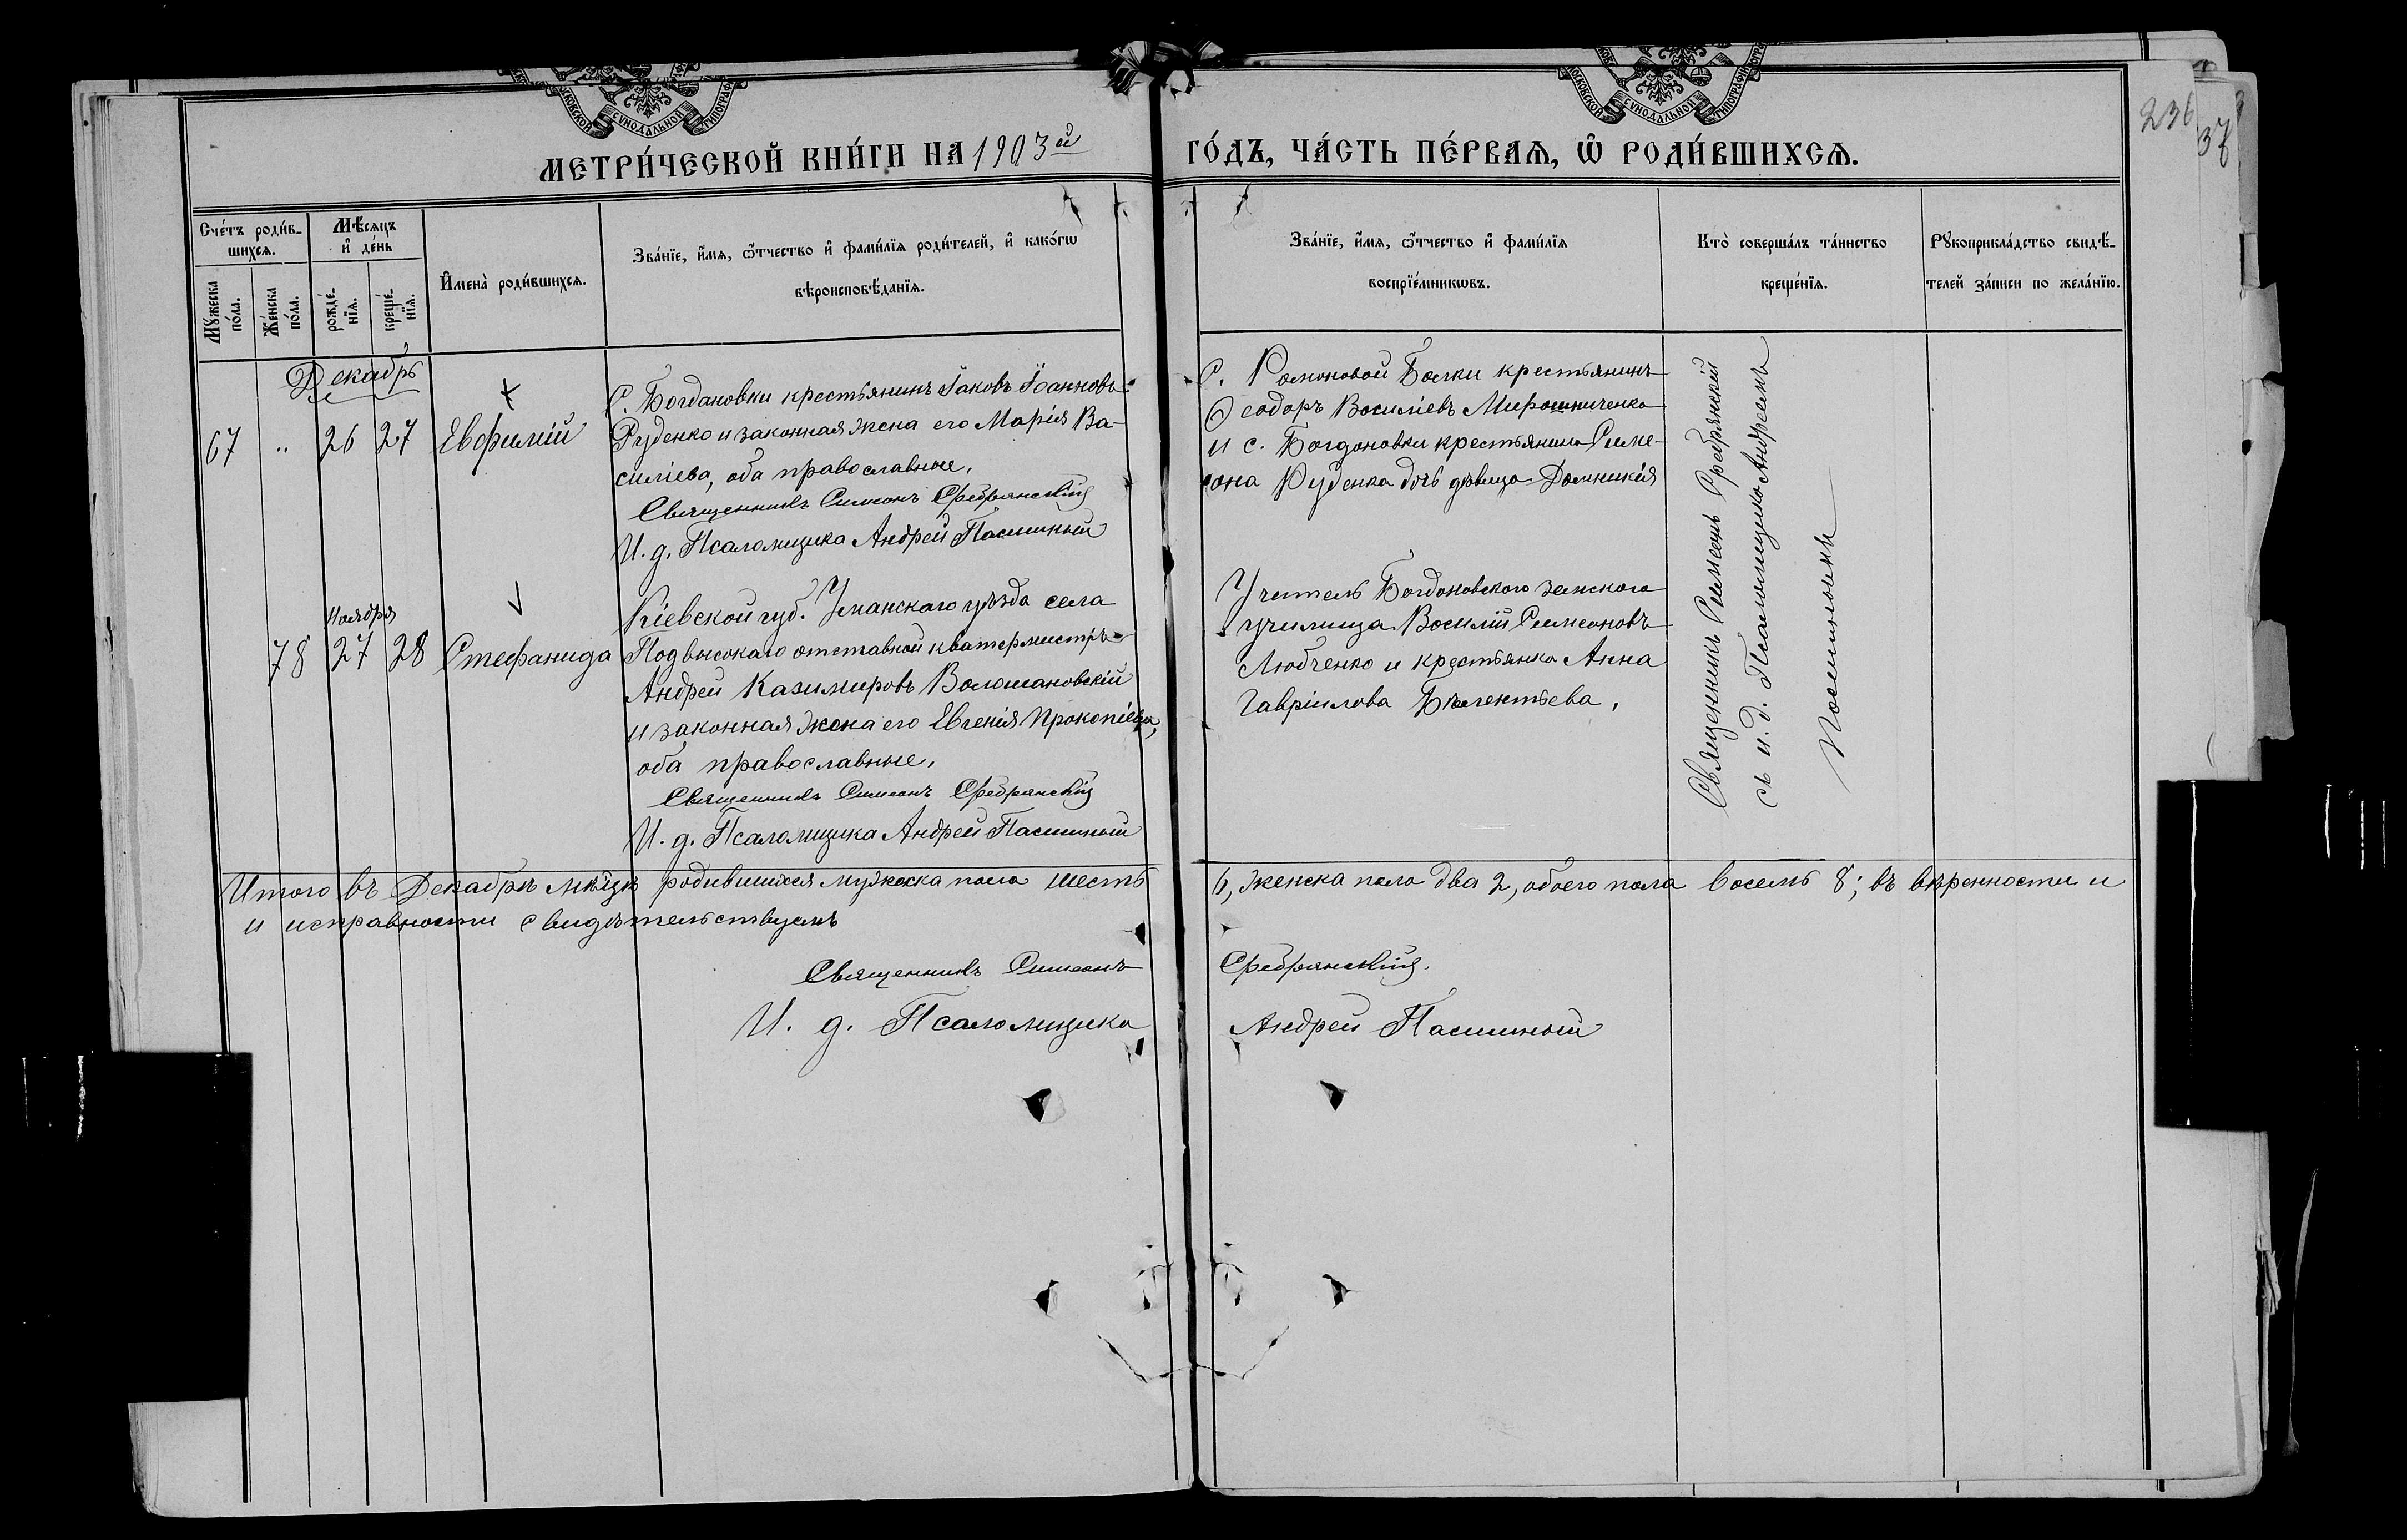 МОСКОВСКОЙ СѴНОДАЛЬНОЙ ТИПОГРАФІИ
МОСКОВСКОЙ СѴНОДАЛЬНОЙ ТИПОГРАФІИ
236
37
МЕТРИ́ЧЕСКОЙ КНИ́ГИ НА 1903й ГО́ДЪ, ЧА́СТЬ ПЕ́РВАѦ, Ѡ҆ РОДИ́ВШИХСѦ.
Сче́тъ роди́в-
шихсѧ.
Мꙋжеска по́ла.
Же́нска по́ла.
Мѣ́сѧцъ
и҆ де́нь
рожде́-
нїѧ.
креще́-
нїѧ.
И҆мена̀ роди́вшихсѧ.
Зва́нїе, и҆́мѧ, ѻ҆́тчество и҆ фами́лїѧ роди́телей, и҆ како́гѡ
вѣроисповѣ́данїѧ.
Зва́нїе, и҆́мѧ, ѻ҆́тчество и҆ фами́лїѧ
воспрїе́мникѡвъ.
Кто̀ соверша́лъ та́инство
креще́нїѧ.
Рꙋкоприкла́дство свидѣ́-
телей за́писи по жела́нїю.
Декабрь
67 " 26 27 Евфимій
С. Богдановки крестьянинъ Іаковъ Іоанновъ
Руденко и законная жена его Марія Ва-
силіева, оба православные.
Священникъ Симеонъ Сребрянскій
И. д. Псаломщика Андрей Пасишный
С. Романовой Балки крестьянинъ
Ѳеодоръ Василіевъ Мирошниченко
и с. Богдановки крестьянина Симе-
она Руденка дочь дѣвица Домникія
Ноября
78 27 28 Стефанида
Кіевской губ. Уманскаго уѣзда села
Подвысокаго отставной кватермистръ
Андрей Казимировъ Волошановскій
и законная жена его Евгенія Прокопіева,
оба православные.
Священникъ Симеонъ Сребрянскій
И. д. Псаломщика Андрей Пасишный
Учитель Богдановскаго земскаго
училища Василій Симеоновъ
Любченко и крестьянка Анна
Гавріилова
Священникъ Симеонъ Сребрянскій
съ и. д. Псаломщика Андреемъ
Пасишнымъ
Итого въ Декабрѣ мѣсяцѣ родившихся мужеска пола шесть 6, женска пола два 2, обоего пола восемь 8; въ вѣрности и
и исправности свидѣтельствуемъ
Священникъ Симеонъ Сребрянскій.
И. д. Псаломщика Андрей Пасишный